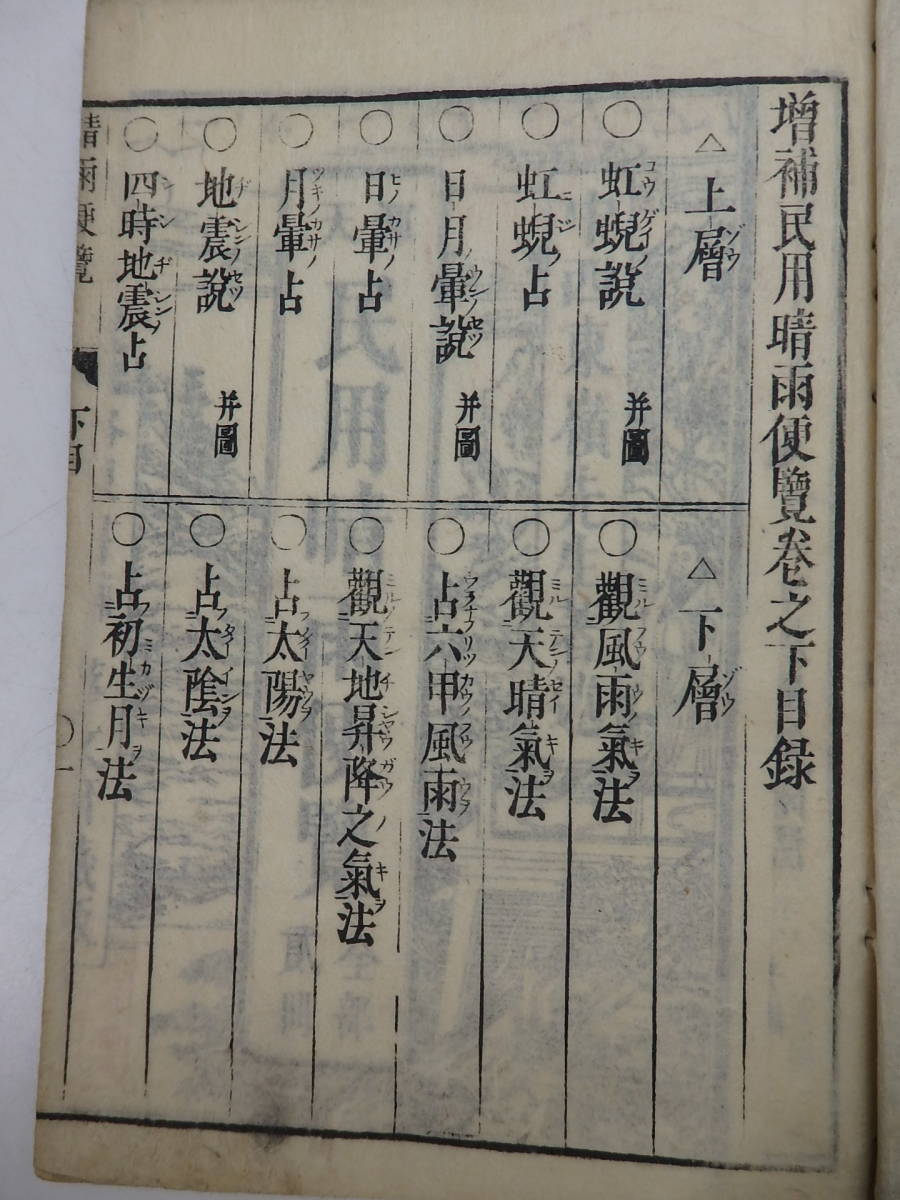 増補民用晴雨便覽卷之下目録
△上層
○虹蜺說 并圖
○虹蜺占
○日月暈說 并圖
○日暈占
○月暈占
○地震說 并圖
○四時地震占
△下層
○觀風雨氣法
○觀天晴氣法
○占六甲風雨法
○觀天地昇降之氣法
○占太陽法
○占太陰法
○占初生月法
晴雨便覽 下目 ○一